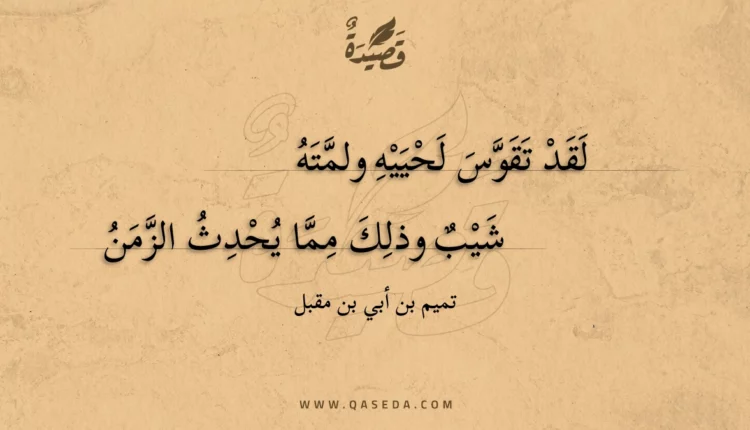 قَصِيْدَةٌ
لَقَدْ تَقَوَّسَ لَحْيَيْهِ ولمَّتَهُ
شَيْبٌ وذلِكَ مِمَّا يُحْدِثُ الزَّمَنُ
تميم بن أبي بن مقبل
WWW.QASEDA.COM